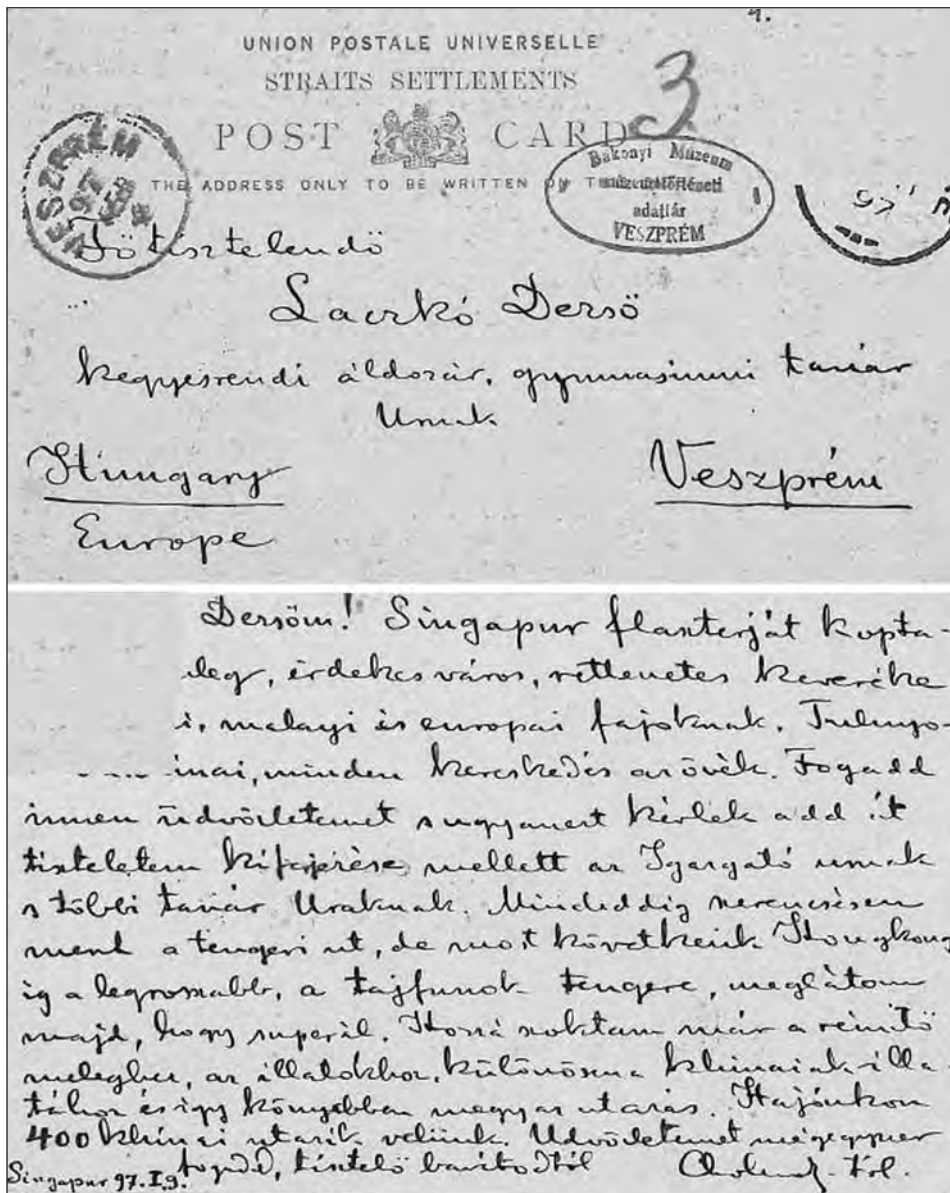 4.
UNION POSTALE UNIVERSELLE
STRAITS SETTLEMENTS
3
POST CARD
THE ADDRESS ONLY TO BE WRITTEN ON
VESZPRÉM
97
Bakonyi Múzeum
adattár
VESZPRÉM
Főtisztelendő
Laczkó Dezső
kegyesrendi áldozár, gymnasiumi tanár
Urnak
Hungary Veszprém
Europe
Dezsőm! Singapur flaszterját kopta-
érdekes város, rettenetes keveréke
i, malayi és europai fajoknak. Tulnyo-
inai, minden kereskedés az övék. Fogadd
innen üdvözletemet s ugyanezt kérlek add át
tiszteletem kifejezése mellett az Igazgató urnak
s többi tanár Uraknak. Mindeddig szerencsésen
ment a tengeri ut, de most következik Hongkong
ig a legrosszabb, a tájfunok tengere, meglátom
majd, hogy superál. Hozzá szoktam már a rémítő
meleghez, az illatokhoz, különösen a khinaiak illa-
tához és igy könyebben megy az utazás. Hajónkon
400 khinai utazik velünk. Üdvözletemet mégegyszer
fogadd, tisztelő barátodtól
Singapur 97.I.9.